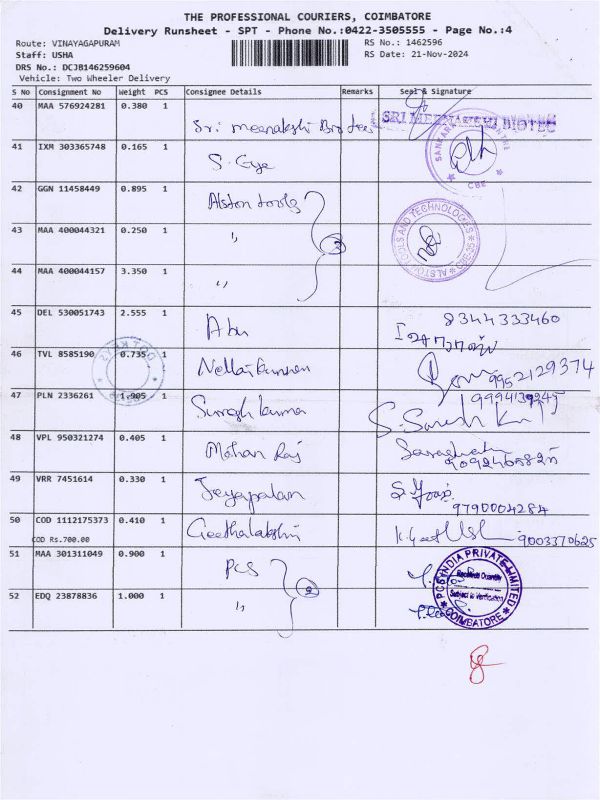 THE PROFESSIONAL COURIERS, COIMBATORE
Delivery Runsheet - SPT - Phone No.:0422-3505555 - Page No.:4
Route: VINAYAGAPURAM
RS No.: 1462596
Staff: USHA
RS Date: 21-Nov-2024
DRS No.: DCJB146259604
Vehicle: Two Wheeler Delivery
S No Consignment No Weight PCS Consignee Details Remarks Seal & Signature
40 MAA 576924281 0.380 1
Sri meenakshi SRI MEENAKSHI BIOTEC
41 IXM 303365748 0.165 1
S. CBE
42 GGN 11458449 0.895 1
Alston tools ALSTON TOOLS AND TECHNOLOGIES CBE-35
43 MAA 400044321 0.250 1
" 3
44 MAA 400044157 3.350 1
"
45 DEL 530051743 2.555 1
8344333460
46 TVL 8585190 0.735 1
9952129374
47 PLN 2336261 1.905 1
Suresh kumar S. Suresh
48 VPL 950321274 0.405 1
Mohan Raj
9092465825
49 VRR 7451614 0.330 1
Jeyapalan
9790004284
50 COD 1112175373 0.410 1
Geethalakshmi 9003370625
COD Rs.700.00
51 MAA 301311049 0.900 1
PCS
PCS INDIA PRIVATE LIMITED
Received Quantity
Subject to Verification
COIMBATORE
52 EDQ 23878836 1.000 1
" 2